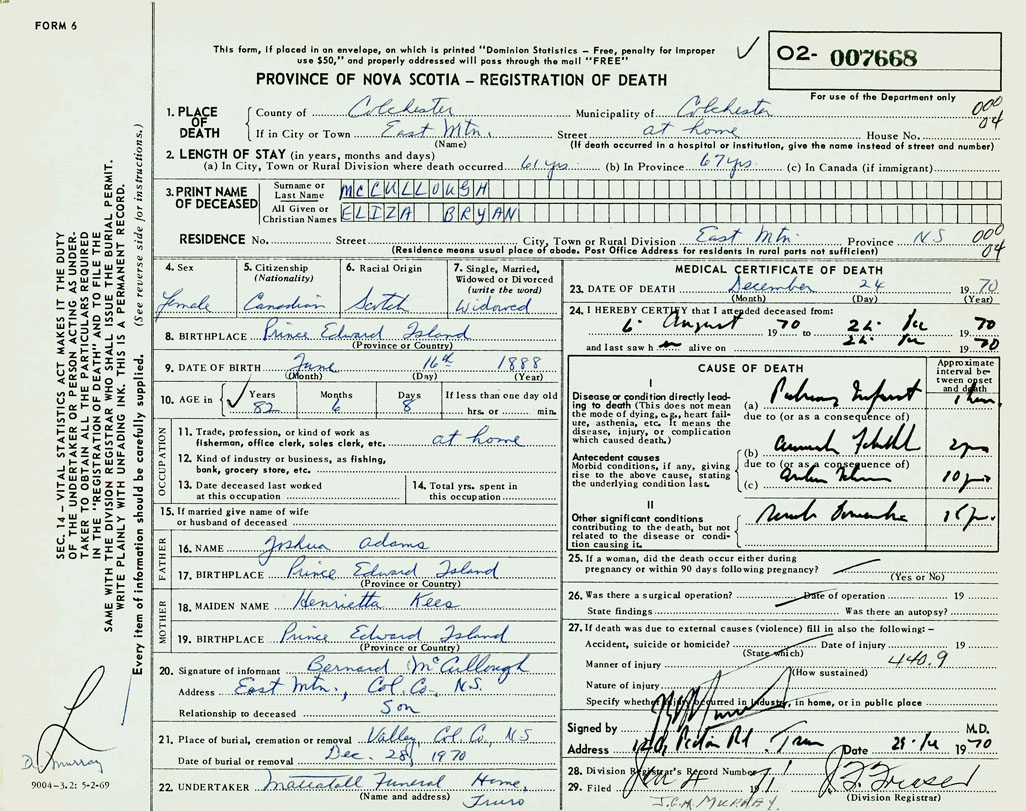 FORM 6
This form, if placed in an envelope, on which is printed "Dominion Statistics – Free, penalty for improper
use $50," and properly addressed will pass through the mail "FREE"
02- 007668
PROVINCE OF NOVA SCOTIA – REGISTRATION OF DEATH
For use of the Department only
1. PLACE OF DEATH
County of Colchester Municipality of Colchester 000
If in City or Town East Mtn. Street at home House No. 04
(Name) (If death occurred in a hospital or institution, give the name instead of street and number)
2. LENGTH OF STAY (in years, months and days)
(a) In City, Town or Rural Division where death occurred 61 yrs. (b) In Province 67 yrs. (c) In Canada (if immigrant)
3. PRINT NAME OF DECEASED
Surname or Last Name McCULLOUGH
All Given or Christian Names ELIZA BRYAN
RESIDENCE No. Street City, Town or Rural Division East Mtn. Province N.S 000 04
(Residence means usual place of abode. Post Office Address for residents in rural parts not sufficient)
4. Sex Female
5. Citizenship (Nationality) Canadian
6. Racial Origin Scotch
7. Single, Married, Widowed or Divorced (write the word) Widowed
8. BIRTHPLACE Prince Edward Island
(Province or Country)
9. DATE OF BIRTH June 16th 1888
(Month) (Day) (Year)
10. AGE in Years 82 Months 6 Days 8 If less than one day old hrs. or min.
OCCUPATION
11. Trade, profession, or kind of work as fisherman, office clerk, sales clerk, etc. at home
12. Kind of industry or business, as fishing, bank, grocery store, etc.
13. Date deceased last worked at this occupation
14. Total yrs. spent in this occupation
15. If married give name of wife or husband of deceased
FATHER
16. NAME Joshua Adams
17. BIRTHPLACE Prince Edward Island
(Province or Country)
MOTHER
18. MAIDEN NAME Henrietta Kees
19. BIRTHPLACE Prince Edward Island
(Province or Country)
20. Signature of informant Bernard McCullough
Address East Mtn., Col. Co., N.S.
Relationship to deceased Son
21. Place of burial, cremation or removal Valley, Col. Co., N.S
Date of burial or removal Dec. 28, 1970
22. UNDERTAKER Mattatall Funeral Home,
(Name and address) Truro
MEDICAL CERTIFICATE OF DEATH
23. DATE OF DEATH December 24 1970
(Month) (Day) (Year)
24. I HEREBY CERTIFY that I attended deceased from:
6. August 1970 to 1970
and last saw h er alive on 1970
CAUSE OF DEATH
Approximate interval between onset and death
I
Disease or condition directly leading to death (This does not mean the mode of dying, e.g., heart failure, asthenia, etc. It means the disease, injury, or complication which caused death.)
(a) Pulmonary Infarct
due to (or as a consequence of)
Antecedent causes
Morbid conditions, if any, giving rise to the above cause, stating the underlying condition last.
(b)
due to (or as a consequence of)
(c)
II
Other significant conditions contributing to the death, but not related to the disease or condition causing it.
25. If a woman, did the death occur either during pregnancy or within 90 days following pregnancy?
(Yes or No)
26. Was there a surgical operation? Date of operation 19
State findings Was there an autopsy?
27. If death was due to external causes (violence) fill in also the following: –
Accident, suicide or homicide? Date of injury 19
(State which) 440.9
Manner of injury
(How sustained)
Nature of injury
Specify whether injury occurred in Industry, in home, or in public place
Signed by M.D.
Address Date 1970
28. Division Registrar's Record Number
29. Filed 1971
(Division Registrar)
J.C.H. MURRAY.
SEC. 14 – VITAL STATISTICS ACT MAKES IT THE DUTY
OF THE UNDERTAKER OR PERSON ACTING AS UNDER-
TAKER TO OBTAIN ALL THE PARTICULARS REQUIRED
IN THE "REGISTRATION OF DEATH" AND TO FILE THE
SAME WITH THE DIVISION REGISTRAR WHO SHALL ISSUE THE BURIAL PERMIT.
WRITE PLAINLY WITH UNFADING INK. THIS IS A PERMANENT RECORD.
Every item of information should be carefully supplied. (See reverse side for instructions.)
D. Murray
9004-3.2: 5-2-69